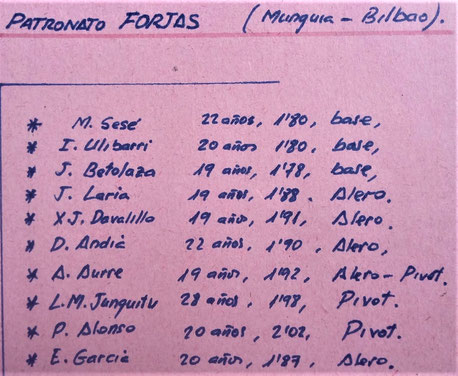 PATRONATO FORJAS (Munguia - Bilbao).
* M. Sesé 22 años, 1'80, base,
* I. Ulibarri 20 años 1'80, base,
* J. Betolaza 19 años, 1'78, base,
* J. Laria 19 años, 1'88. Alero.
* X.J. Davalillo 19 años, 1'91, Alero.
* D. Andià 22 años, 1'90, Alero,
* A. Aurre 19 años, 1'92, Alero-Pivot.
* L.M. Junguitu 28 años, 1'98, Pivot.
* P. Alonso 20 años, 2'02, Pivot.
* E. Garcià 20 años, 1'87, Alero.